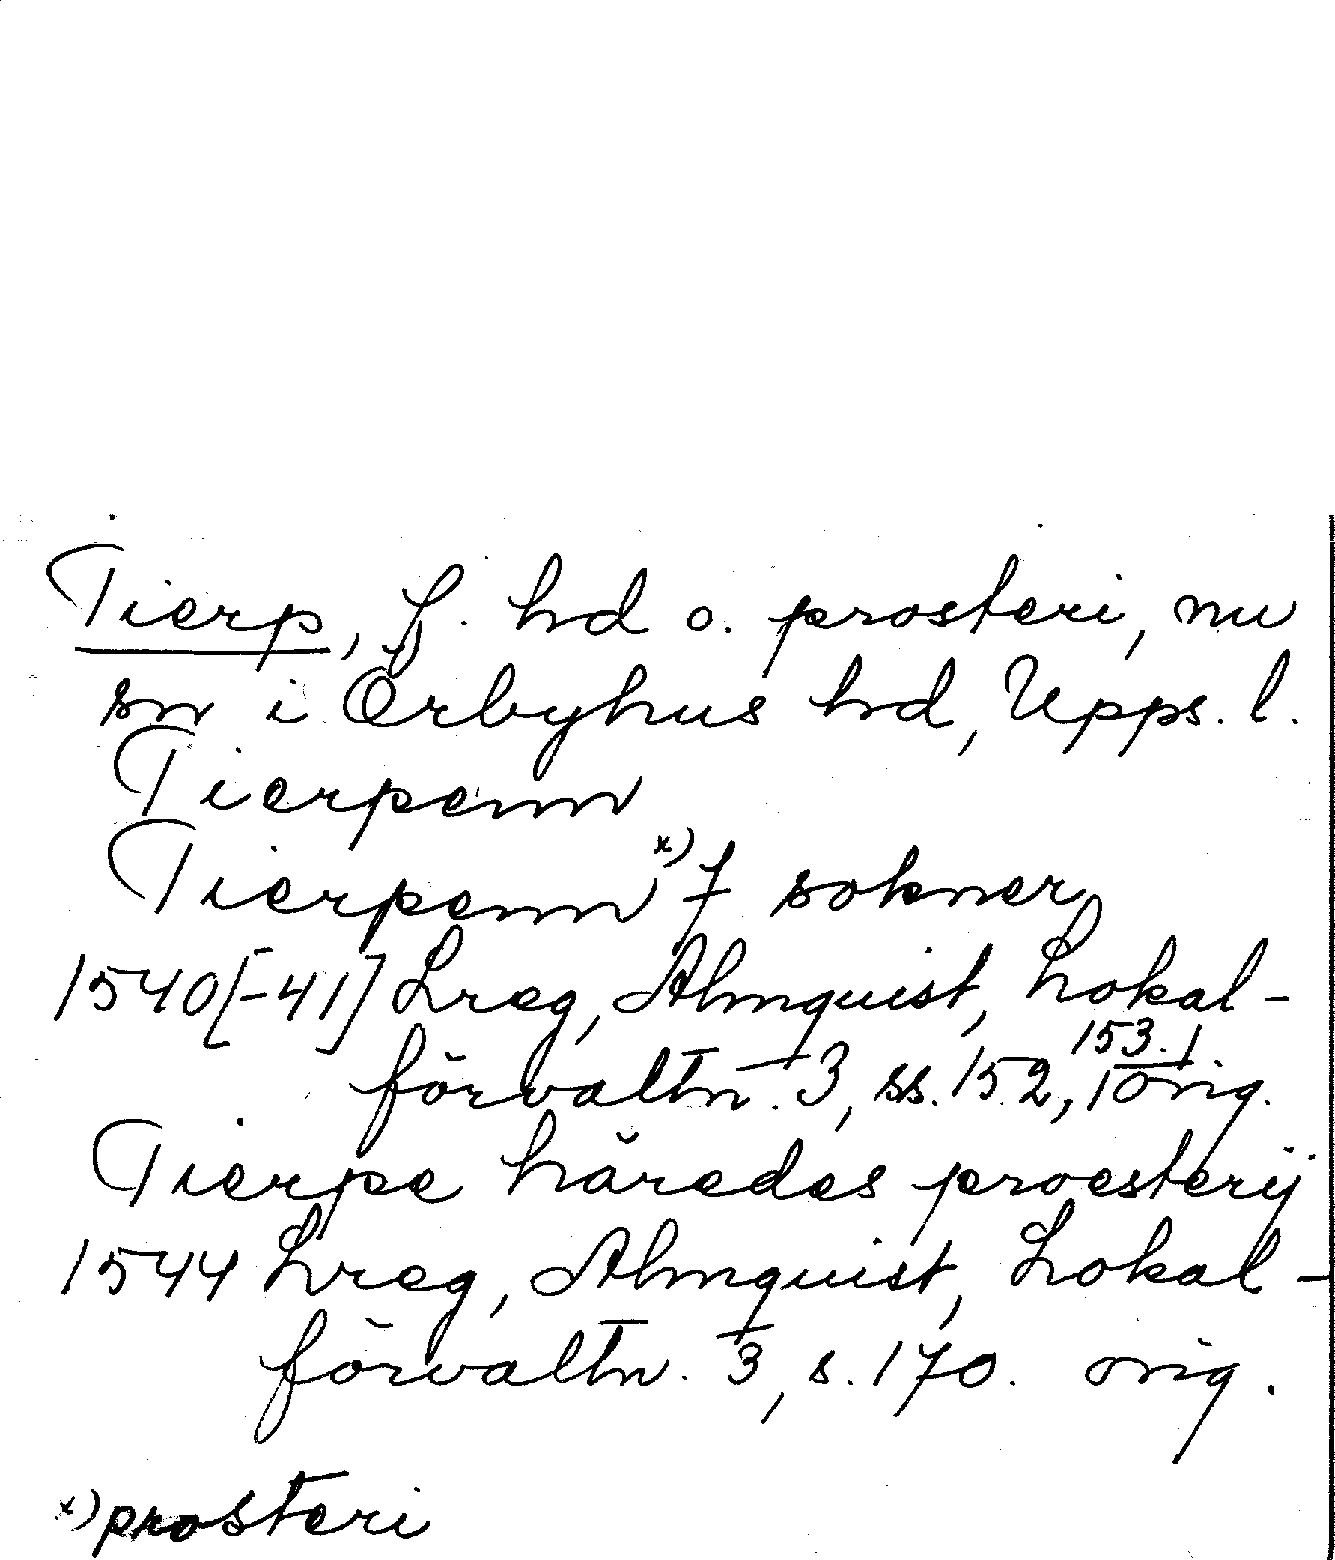 Tierp, f. hd o. prosteri, nu
sn i Örbyhus hd, Upps. l.
Tierpenn
Tierpenn x) 7 sokner
1540[-41] Lreg, Almquist, Lokal-
förvaltn. 3, ss. 152, 153. 1 orig.
Tierpe häredes proesterij
1544 Lreg, Almquist, Lokal-
förvaltn. 3, s. 170. orig.
x) prosteri